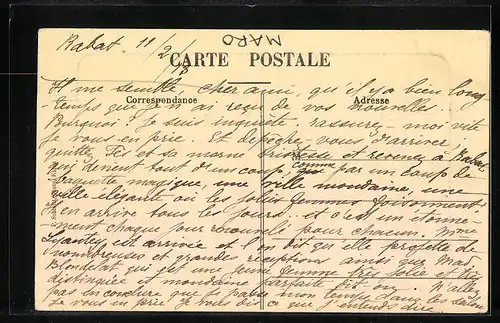 MARO
Rabat. 11/2/18
CARTE POSTALE
Il me semble, cher ami, qu'il y a bien long
Correspondance
Adresse
temps que je n'ai reçu de vos nouvelles.
Pourquoi? Je suis inquiète. rassurez-moi vite
je vous en prie. Et dépêchez vous d'arriver,
quittez Fès et sa morne tristesse et revenez à Rabat
qui devient tout d'un coup comme par un coup de
baguette magique, une ville mondaine, une
ville élégante où les jolies femmes foisonnent.
Il en arrive tous les jours.. et c'est un étonne
ment chaque jour renouvelé pour chacun. Mme
Lyautey est arrivée et l'on dit qu'elle projette de
nombreuses et grandes réceptions ainsi que Mad.
Blondelat qui est une jeune femme très jolie et très
distinguée et mondaine parfaite dit-on. N'allez
pas en conclure que je passe mon temps dans les salons
je vous en prie je vous dis ce que j'entends dire.